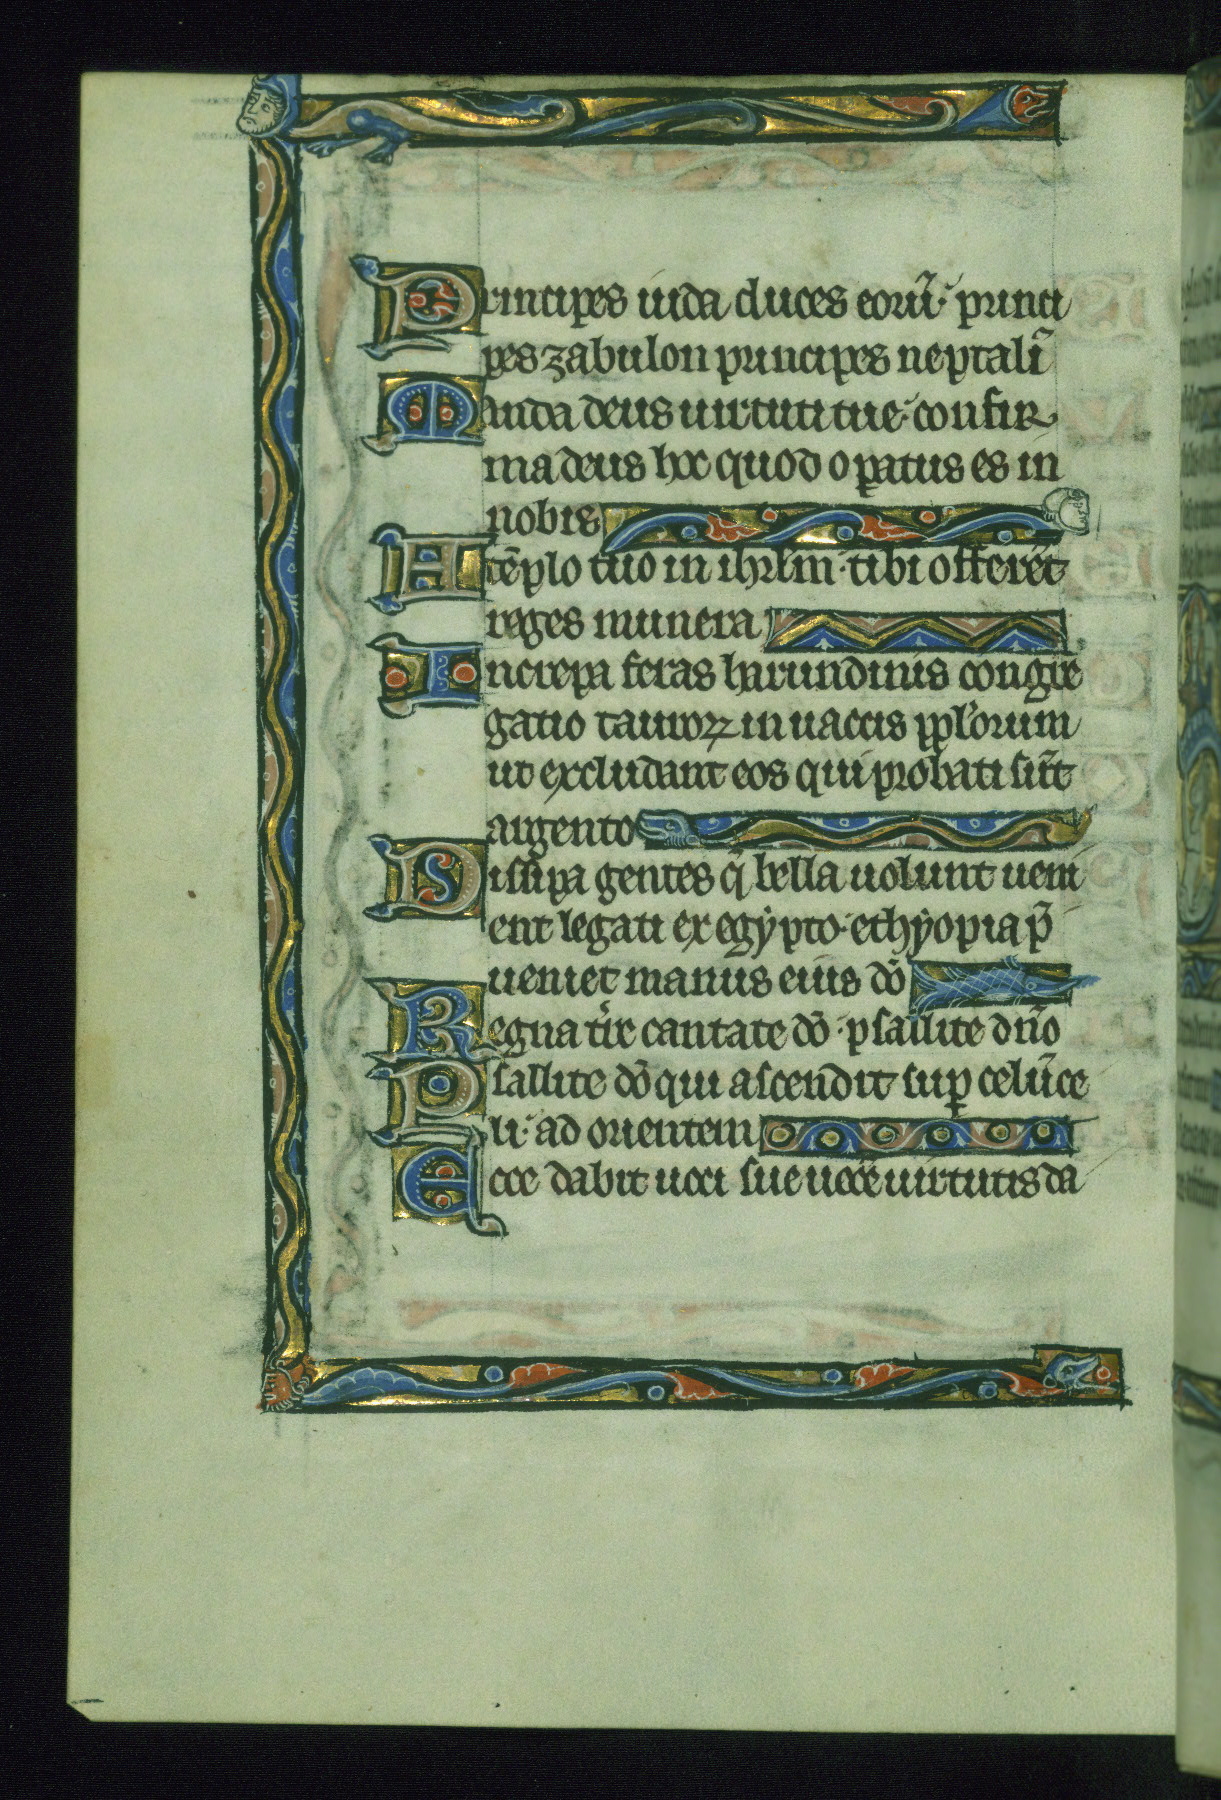 Principes iuda duces eorū· princi
pes zabulon principes neptalī
Manda deus uirtuti tue· confir
ma deus hoc quod operatus es in
nobis
A tēplo tuo in ihrlm· tibi offerēt
reges munera
Increpa feras harundinis congre
gatio tauroꝝ in uaccis pplorum
ut excludant eos qui probati sūt
argento
Dissipa gentes q̄ bella uolunt ueni
ent legati ex egypto· ethyopia p̄
ueniet manus eius dō
Regna tire cantate dō· psallite dn̄o
Psallite dō qui ascendit suꝑ celū ce
li· ad orientem
Ecce dabit uoci sue uocē uirtutis da